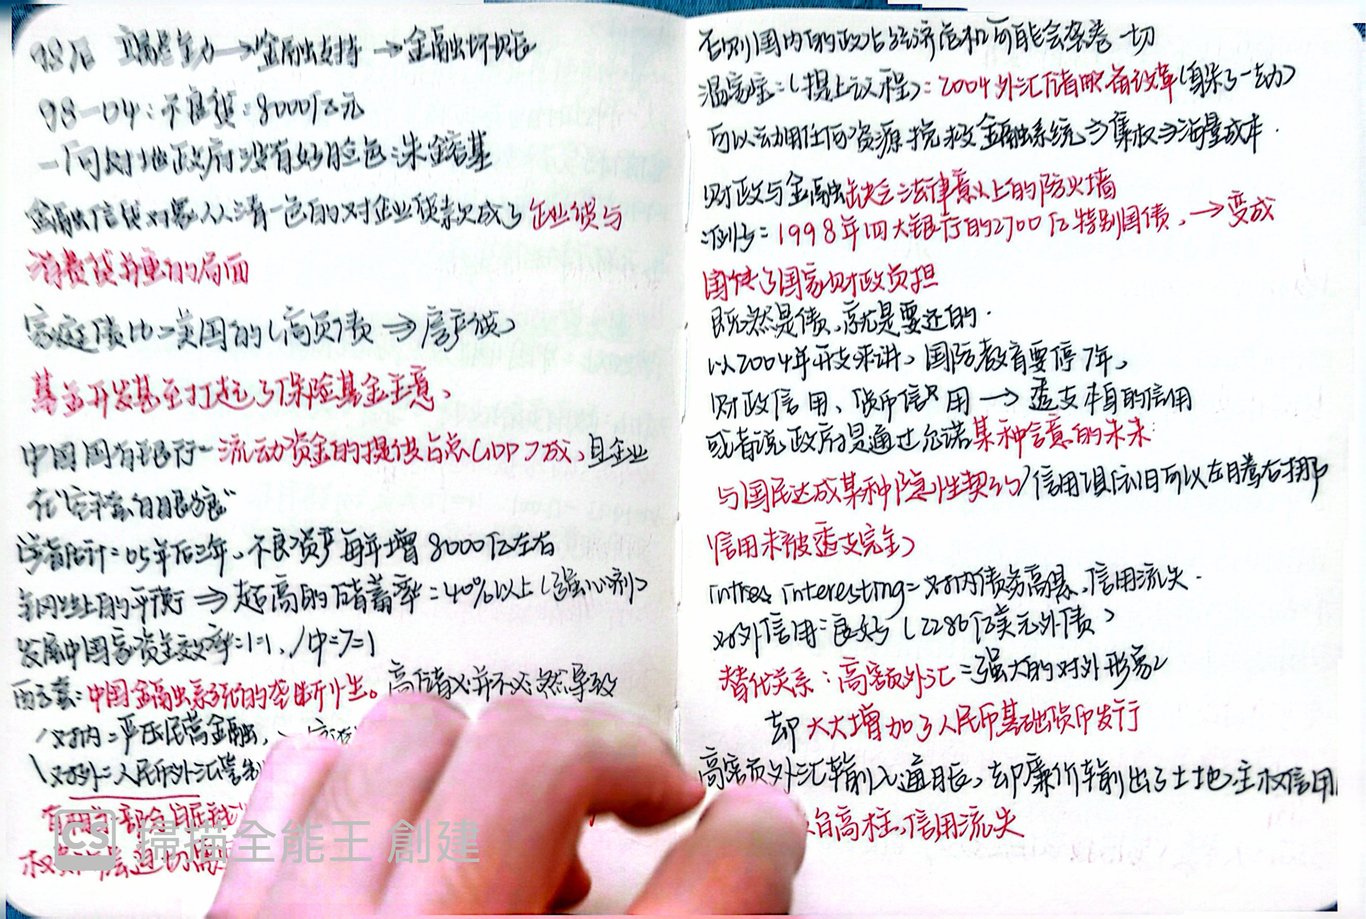 98后 →金融支持 →金融坏账
98—04：不良贷：8000亿元
一个对地政府没有好脸色：朱镕基
金融信贷对象从清一色的对企业贷款变成了企业贷与
消费贷并重的局面
家庭债比 美国的(高负债⇒房产贷)
基金开发甚至打起了保险基金主意。
中国国有银行—流动资金的提供占总GDP7成,且企业
在
学者估计=05年后三年,不良资产每年增8000亿左右
的平衡⇒超高的储蓄率=40%以上(强心剂)
发展中国家资金效率=1:1./中=7:1
两方素:中国金融系统的垄断产生。高储蓄并不必然导致
对内=严压民营金融,
对外=人民币外汇管制
否则国内的政治经济危机可能会席卷一切
温家宝:(提上议程):2004外汇储备改革
可以动用任何资源挽救金融系统⇒集权⇒海量成本.
财政与金融缺乏法律意义上的防火墙
1998年四大银行的2700亿特别国债, →变成
国债了国家财政负担
既然是债,就是要还的.
以2004年开支来讲,国防教育要停7年。
财政信用、货币信用 → 透支本身的信用
或者说政府是通过允诺某种含意的未来:
与国民达成某种隐性契约/信用项依旧可以左腾右挪
信用未被透支完全)
interesting=对内债务高悬,信用流失.
对外信用:良好(2286亿美元外债)
替代关系:高额外汇=强大的对外形象
却大大增加了人民币基础货币发行
高额外汇输入通胀,却廉价输出了土地、主权信用
自高柱,信用流失
CS 掃描全能王 創建